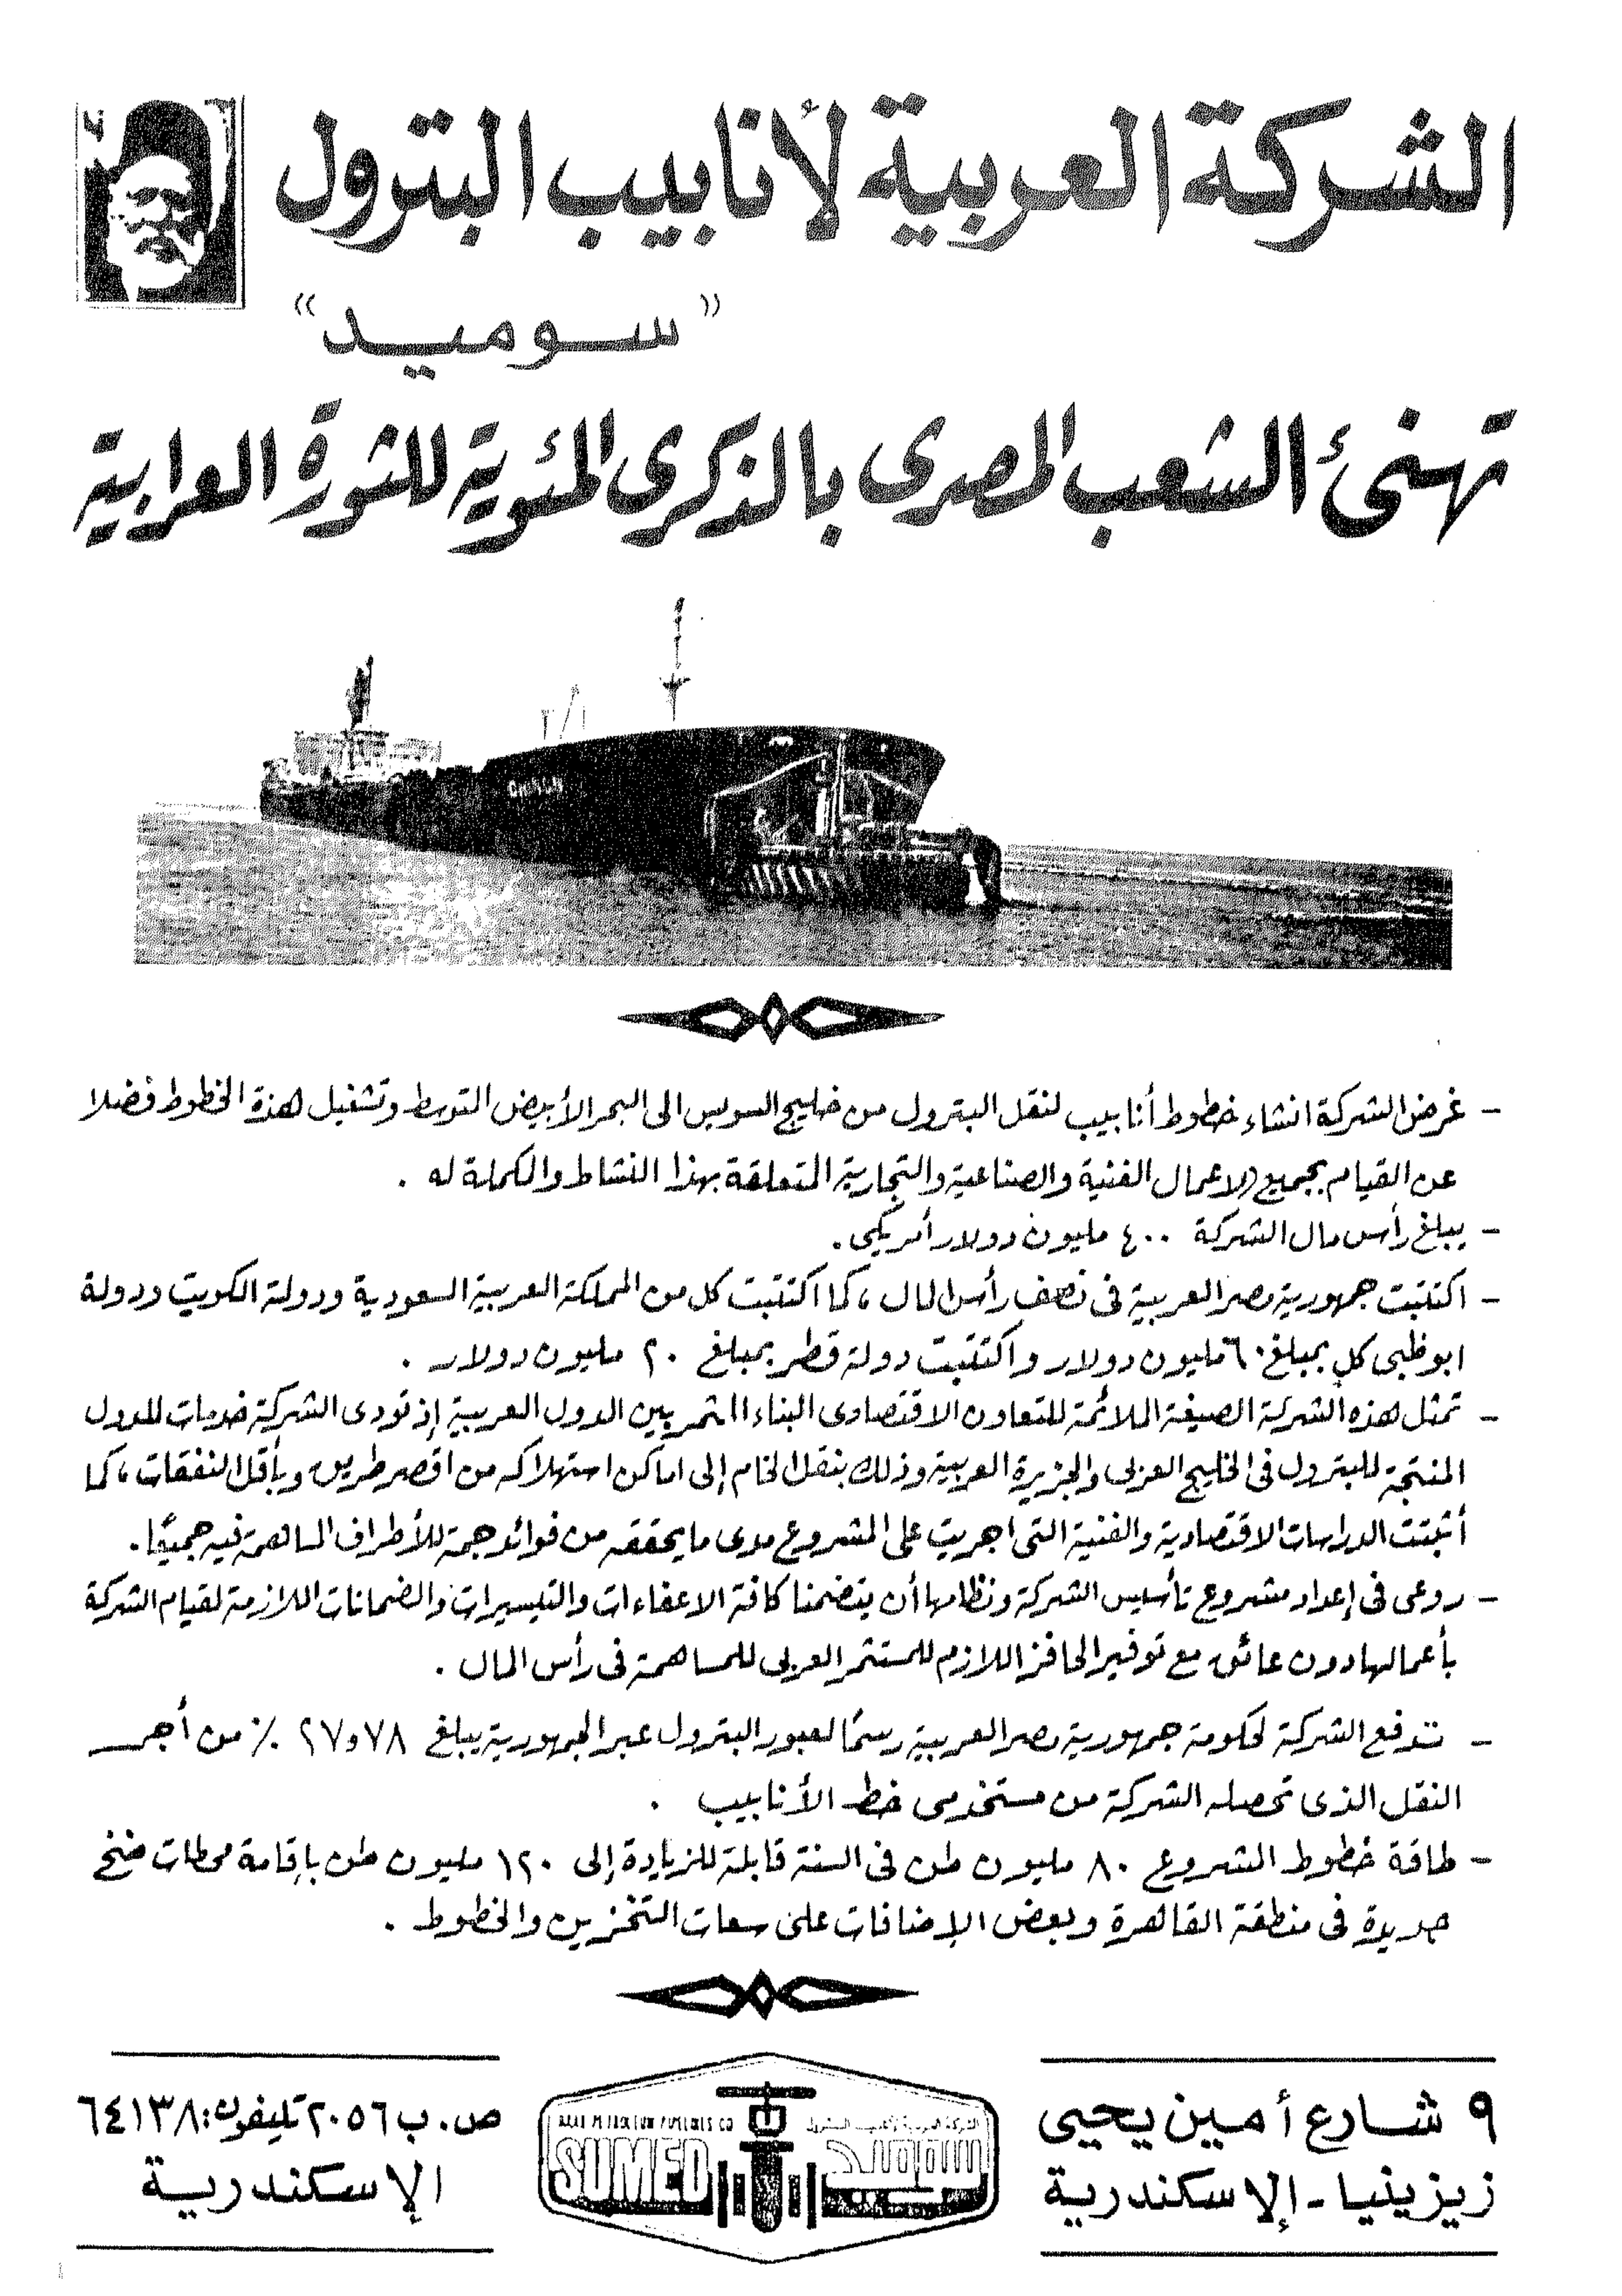 الشركة العربية لأنابيب البترول
"سوميد"
تهنئ الشعب المصرى بالذكرى المئوية للثورة العرابية
- غرض الشركة انشاء خطوط أنابيب لنقل البترول من خليج السويس الى البحر الأبيض المتوسط وتشغيل هذة الخطوط فضلا
عن القيام بجميع الاعمال الفنية والصناعية والتجارية المتعلقة بهذا النشاط والمكملة له .
- يبلغ رأس مال الشركة ٤٠٠ مليون دولار أمريكى .
- اكتتبت جمهورية مصر العربية فى نصف رأس المال ، كما اكتتبت كل من المملكة العربية السعودية ودولة الكويت ودولة
ابوظبى كل بمبلغ ٦٠ مليون دولار واكتتبت دولة قطر بمبلغ ٢٠ مليون دولار .
- تمثل هذه الشركة الصيغة الملائمة للتعاون الاقتصادى البناء المثمر بين الدول العربية إذ تودى الشركة خدمات للدول
المنتجة للبترول فى الخليج العربى والجزيرة العربية وذلك بنقل الخام إلى اماكن استهلاكه من اقصر طريق وبأقل النفقات ، كما
أثبتت الدراسات الاقتصادية والفنية التى اجريت على المشروع مدى ما يحققه من فوائد جمة للأطراف المساهمة فيه جميعًا .
- روعى فى إعداد مشروع تأسيس الشركة ونظامها أن يتضمنا كافة الاعفاءات والتيسيرات والضمانات اللازمة لقيام الشركة
بأعمالها دون عائق مع توفير الحافز اللازم للمستثمر العربى للمساهمة فى رأس المال .
- تدفع الشركة لحكومة جمهورية مصر العربية رسمًا لعبور البترول عبر الجمهورية يبلغ ٢٧٫٧٨ ٪ من أجر
النقل الذى تحصله الشركة من مستخدمى خط الأنابيب .
- طاقة خطوط المشروع ٨٠ مليون طن فى السنة قابلة للزيادة إلى ١٢٠ مليون طن بإقامة محطات ضخ
جديدة فى منطقة القاهرة وبعض الإضافات على سعات التخزين والخطوط .
٩ شارع أمين يحيى
زيزينيا - الإسكندرية
ARAB PETROLEUM PIPELINES CO
الشركة العربية لأنابيب البترول
SUMED
سوميد
ص . ب ٢٠٥٦ تليفون : ٦٤١٣٨
الإسكندرية